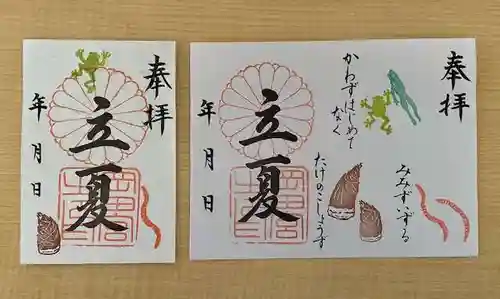 奉拝
立夏
年月日
奉拝
みみずいずる
かわずはじめて
なく
立夏
たけのこしょうず
年月日